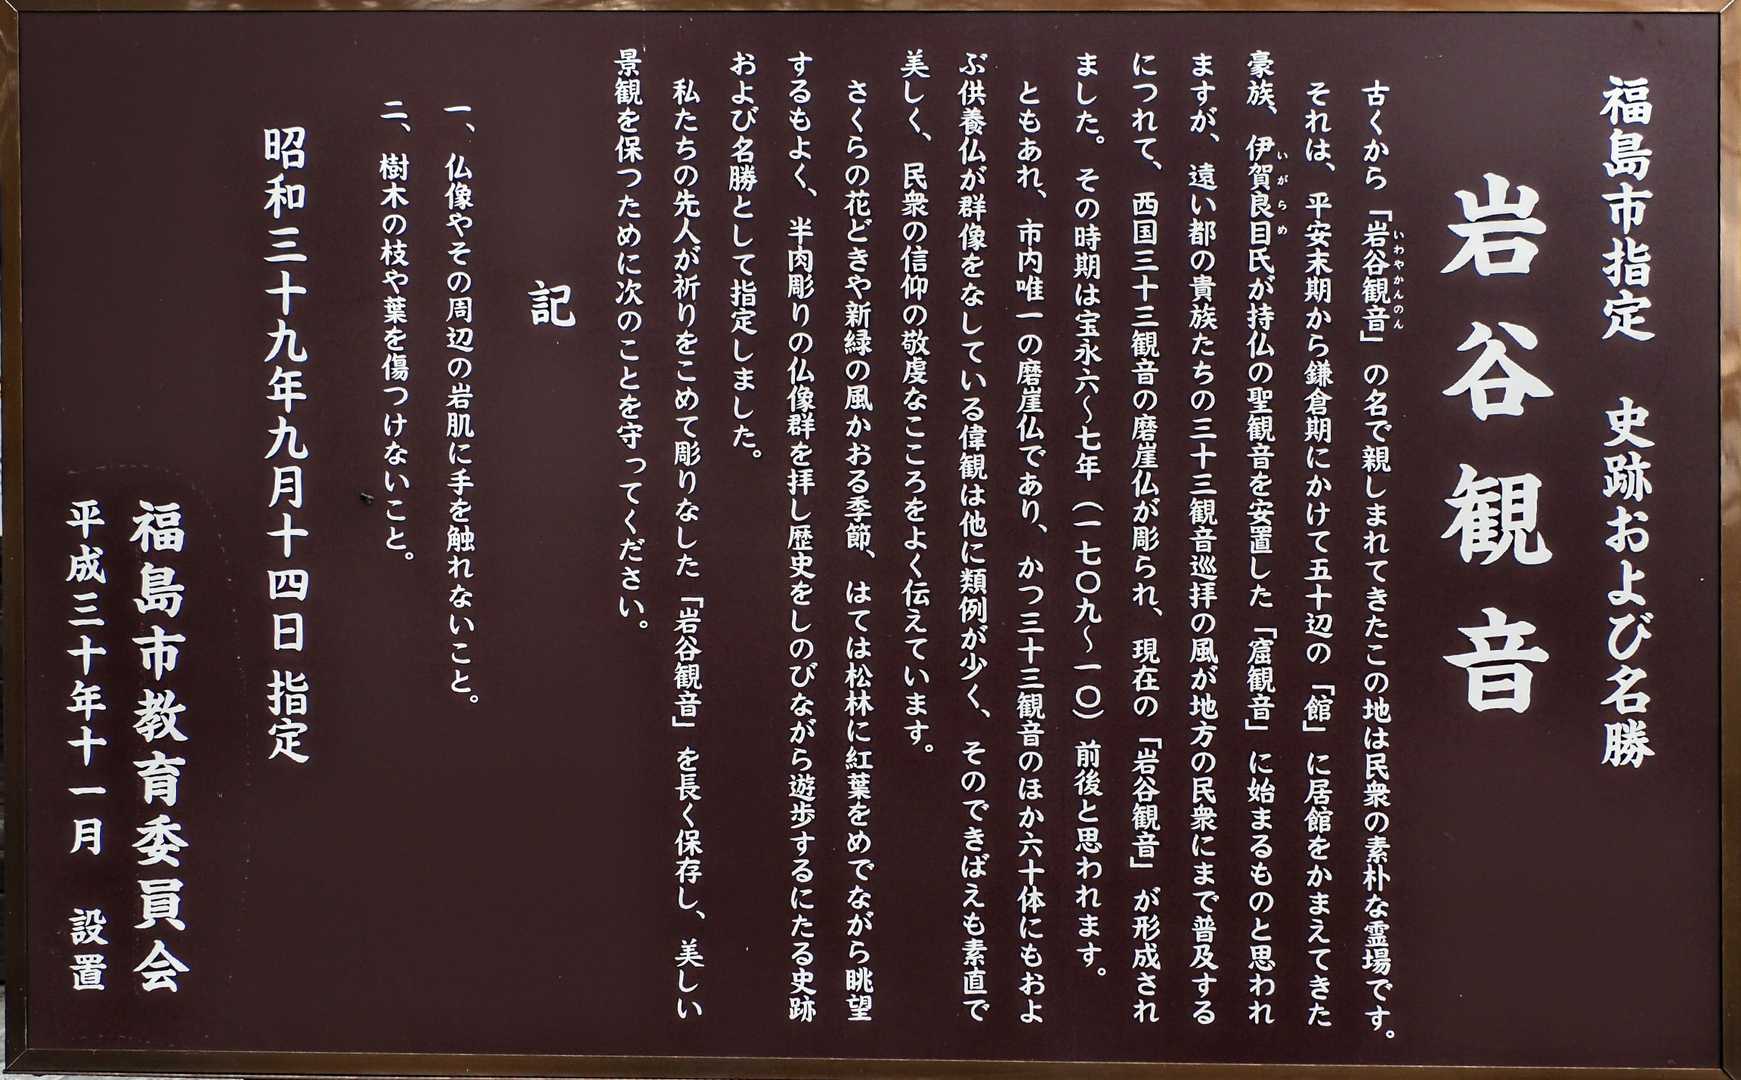 福島市指定　史跡および名勝
岩谷観音
古くから「岩谷観音」の名で親しまれてきたこの地は民衆の素朴な霊場です。
いわやかんのん
それは、平安末期から鎌倉期にかけて五十辺の「館」に居館をかまえてきた
豪族、伊賀良目氏が持仏の聖観音を安置した「窟観音」に始まるものと思われ
いがらめ
ますが、遠い都の貴族たちの三十三観音巡拝の風が地方の民衆にまで普及する
につれて、西国三十三観音の磨崖仏が彫られ、現在の「岩谷観音」が形成され
ました。その時期は宝永六〜七年（一七〇九〜一〇）前後と思われます。
ともあれ、市内唯一の磨崖仏であり、かつ三十三観音のほか六十体にもおよ
ぶ供養仏が群像をなしている偉観は他に類例が少く、そのできばえも素直で
美しく、民衆の信仰の敬虔なこころをよく伝えています。
さくらの花どきや新緑の風かおる季節、はては松林に紅葉をめでながら眺望
するもよく、半肉彫りの仏像群を拝し歴史をしのびながら遊歩するにたる史跡
および名勝として指定しました。
私たちの先人が祈りをこめて彫りなした「岩谷観音」を長く保存し、美しい
景観を保つために次のことを守ってください。
記
一、仏像やその周辺の岩肌に手を触れないこと。
二、樹木の枝や葉を傷つけないこと。
昭和三十九年九月十四日指定
福島市教育委員会
平成三十年十一月　設置